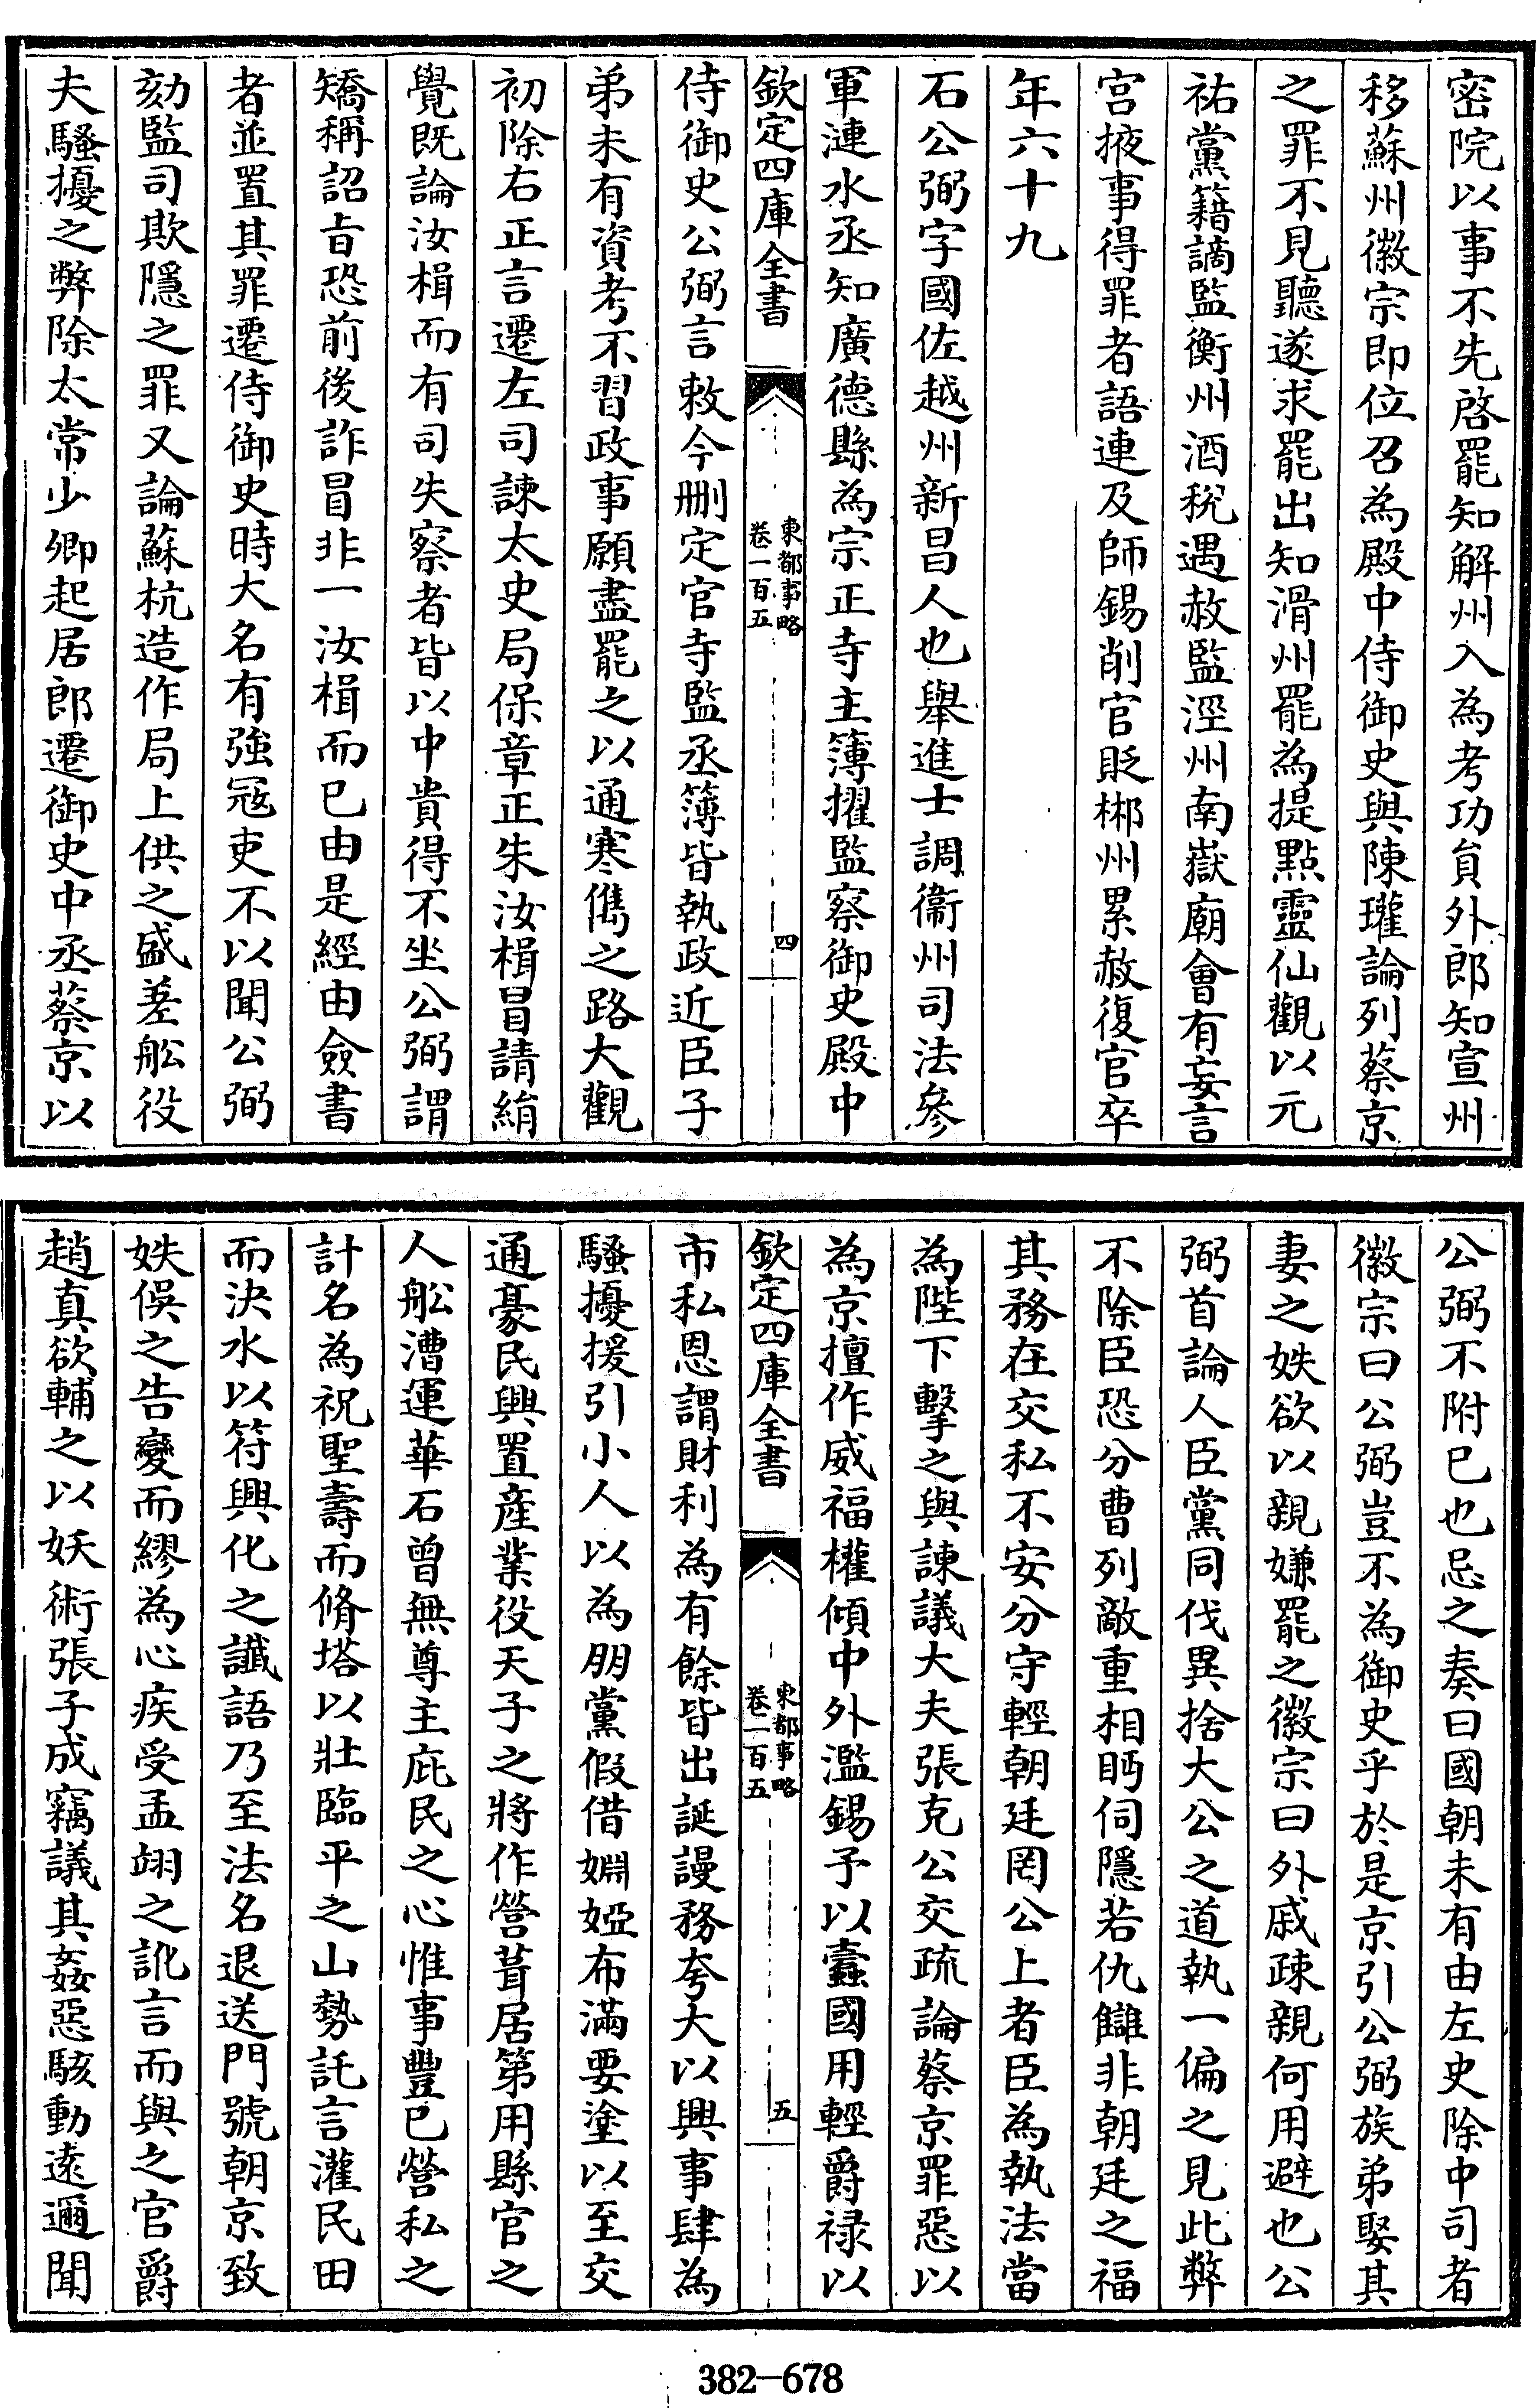 密院以事不先啓罷知解州入為考功員外郎知宣州
移蘇州徽宗即位召為殿中侍御史與陳瓘論列蔡京
之罪不見聽遂求罷出知滑州罷為提點靈仙觀以元
祐黨籍謫監衡州酒稅遇赦監涇州南嶽廟會有妄言
宫掖事得罪者語連及師錫削官貶郴州累赦復官卒
年六十九
石公弼字國佐越州新昌人也舉進士調衞州司法參
軍漣水丞知廣德縣為宗正寺主簿擢監察御史殿中
欽定四庫全書
東都事略
卷一百五
四
侍御史公弼言敕令刪定官寺監丞簿皆執政近臣子
弟未有資考不習政事願盡罷之以通寒儁之路大觀
初除右正言遷左司諫太史局保章正朱汝楫冒請絹
覺既論汝楫而有司失察者皆以中貴得不坐公弼謂
矯稱詔旨恐前後詐冒非一汝楫而已由是經由僉書
者並置其罪遷侍御史時大名有強冦吏不以聞公弼
劾監司欺隱之罪又論蘇杭造作局上供之盛差舩役
夫騷擾之弊除太常少卿起居郎遷御史中丞蔡京以
公弼不附已也忌之奏曰國朝未有由左史除中司者
徽宗曰公弼豈不為御史乎於是京引公弼族弟娶其
妻之姪欲以親嫌罷之徽宗曰外戚疎親何用避也公
弼首論人臣黨同伐異捨大公之道執一偏之見此弊
不除臣恐分曹列敵重相眄伺隱若仇讎非朝廷之福
其務在交私不安分守輕朝廷罔公上者臣為執法當
為陛下擊之與諫議大夫張克公交疏論蔡京罪惡以
為京擅作威福權傾中外濫錫予以蠧國用輕爵禄以
欽定四庫全書
東都事略
卷一百五
五
市私恩謂財利為有餘皆出誕謾務夸大以興事肆為
騷擾援引小人以為朋黨假借婣婭布滿要塗以至交
通豪民興置産業役天子之將作營葺居第用縣官之
人舩漕運華石曾無尊主庇民之心惟事豐已營私之
計名為祝聖壽而脩塔以壯臨平之山勢託言灌民田
而決水以符興化之讖語乃至法名退送門號朝京致
姪俁之告變而繆為心疾受孟翊之訛言而與之官爵
趙真欲輔之以妖術張子成竊議其姦惡駭動逺邇聞
382-678